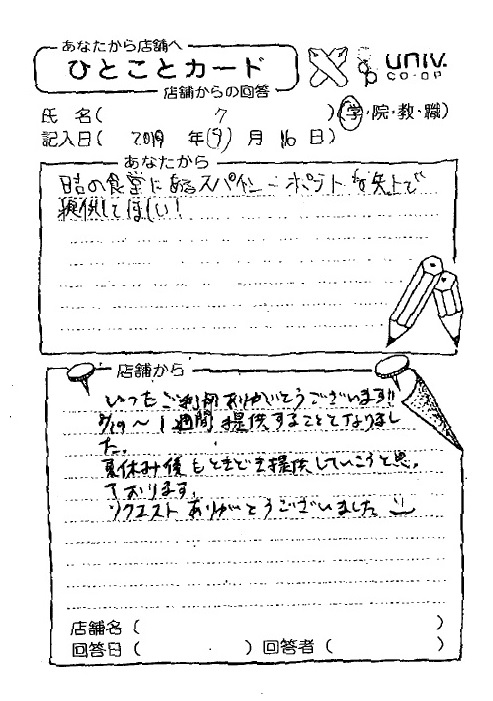 あなたから店舗へ
ひとことカード
店舗からの回答
univ.
CO-OP
氏名( ク ) (学・院・教・職)
記入日( 2019 年 (9) 月 16 日)
あなたから
日吉の食堂にあるスパイシーポテトを矢上で
提供してほしい!
店舗から
いつもご利用ありがとうございます!!
〜1週間提供することとなりまし
た。
夏休み後もときどき提供していこうと思っ
ております。
リクエストありがとうございました
店舗名( )
回答日( ) 回答者( )